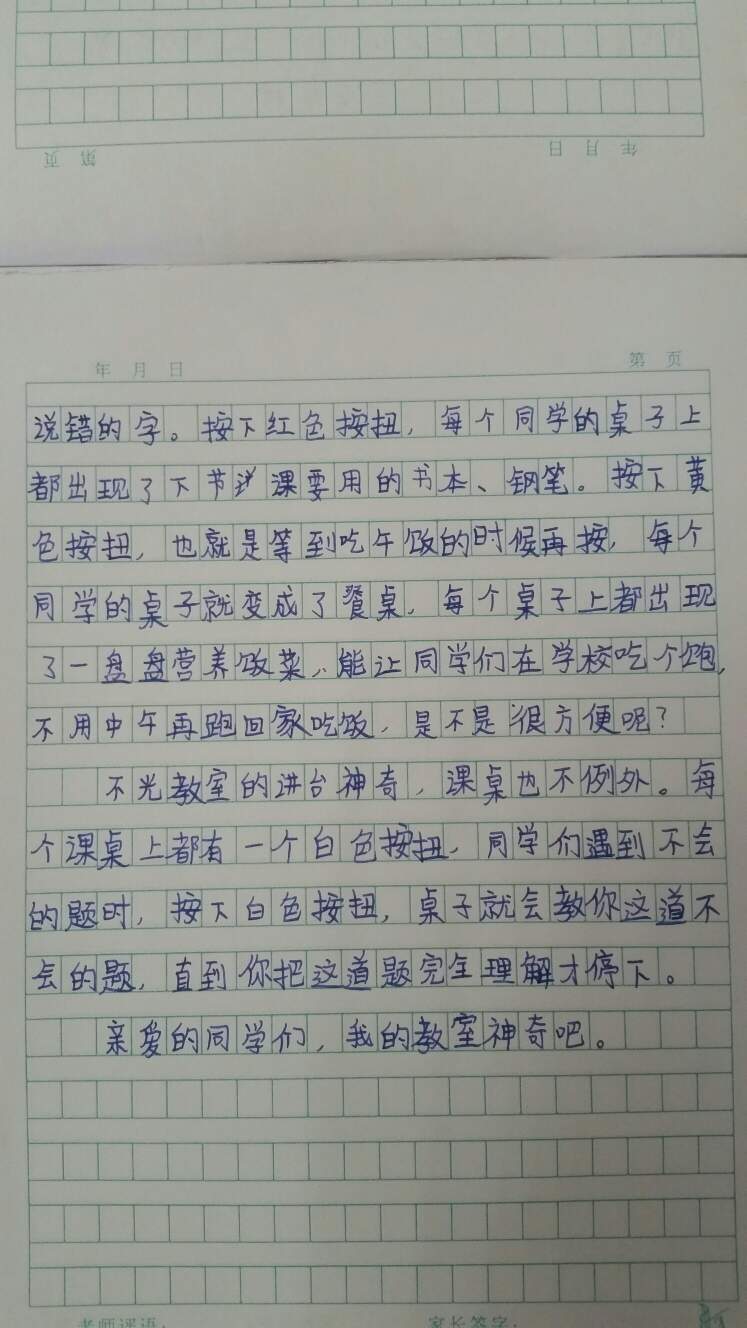 页 第 日 月 年
年 月 日 第 页
说错的字。按下红色按扭，每个同学的桌子上
都出现了下节课要用的书本、钢笔。按下黄
色按扭，也就是等到吃午饭的时候再按，每个
同学的桌子就变成了餐桌，每个桌子上都出现
了一盘盘营养饭菜，能让同学们在学校吃个饱，
不用中午再跑回家吃饭，是不是很方便呢？
不光教室的讲台神奇，课桌也不例外。每
个课桌上都有一个白色按扭，同学们遇到不会
的题时，按下白色按扭，桌子就会教你这道不
会的题，直到你把这道题完全理解才停下。
亲爱的同学们，我的教室神奇吧。
老师评语： 家长签字：